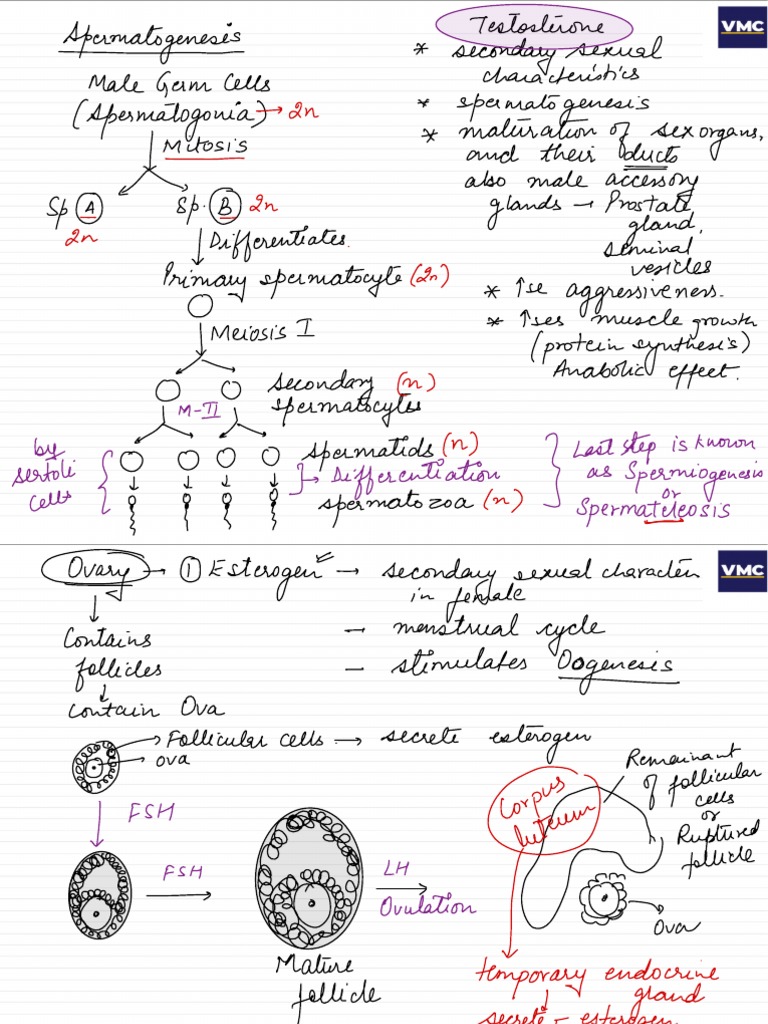 Spermatogenesis
Male Germ Cells
(Spermatogonia) → 2n
Mitosis
Sp A
2n
Sp. B 2n
Differentiates.
Primary spermatocyte (2n)
Meiosis I
Secondary (n)
spermatocytes
M-II
spermatids (n)
→ Differentiation
spermatozoa (n)
by
sertoli
cells
Last step is known
as Spermiogenesis
or
Spermateleosis
Testosterone
VMC
* secondary sexual
characteristics
* spermatogenesis
* maturation of sex organs,
and their ducts
also male accessory
glands → Prostate
gland,
seminal
vesicles
* ↑se aggressiveness.
* ↑ses muscle growth
(protein synthesis)
Anabolic effect.
VMC
Ovary → 1 Esterogen → secondary sexual character
in female
- menstrual cycle
- stimulates Oogenesis
Contains
follicles
contain Ova
Follicular cells → secrete esterogen
ova
FSH
FSH
Mature
follicle
LH
Ovulation
Corpus
luteum
Remainant
of follicular
cells
or
Ruptured
follicle
Ova
temporary endocrine
gland
secrete - esterogen